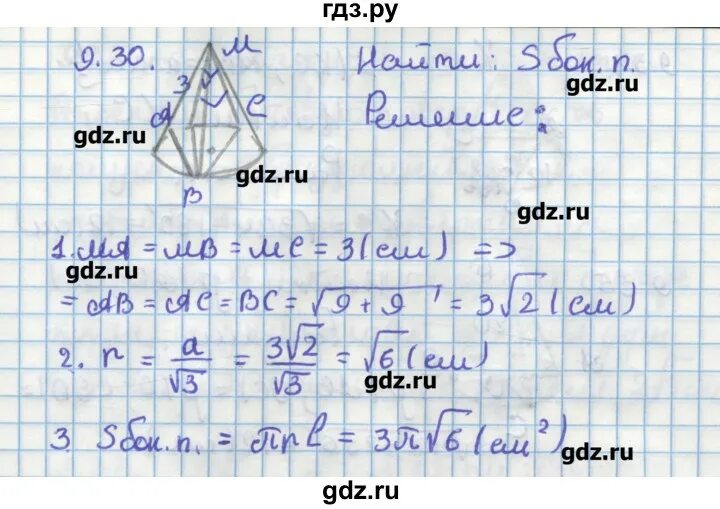 гдз.ру
9.30.
M
3
A
C
B
Найти: Sбок.п.
gdz.ru
Решение:
gdz.ru
gdz.ru
gdz.ru
1. MA = MB = MC = 3 (см) =>
gdz.ru
= AB = AC = BC = √9 + 9 = 3√2 (см)
2. r = a/√3 = 3√2/√3 = √6 (см)
gdz.ru
3. Sбок.п. = πrl = 3π√6 (см²)
gdz.ru
gdz.ru